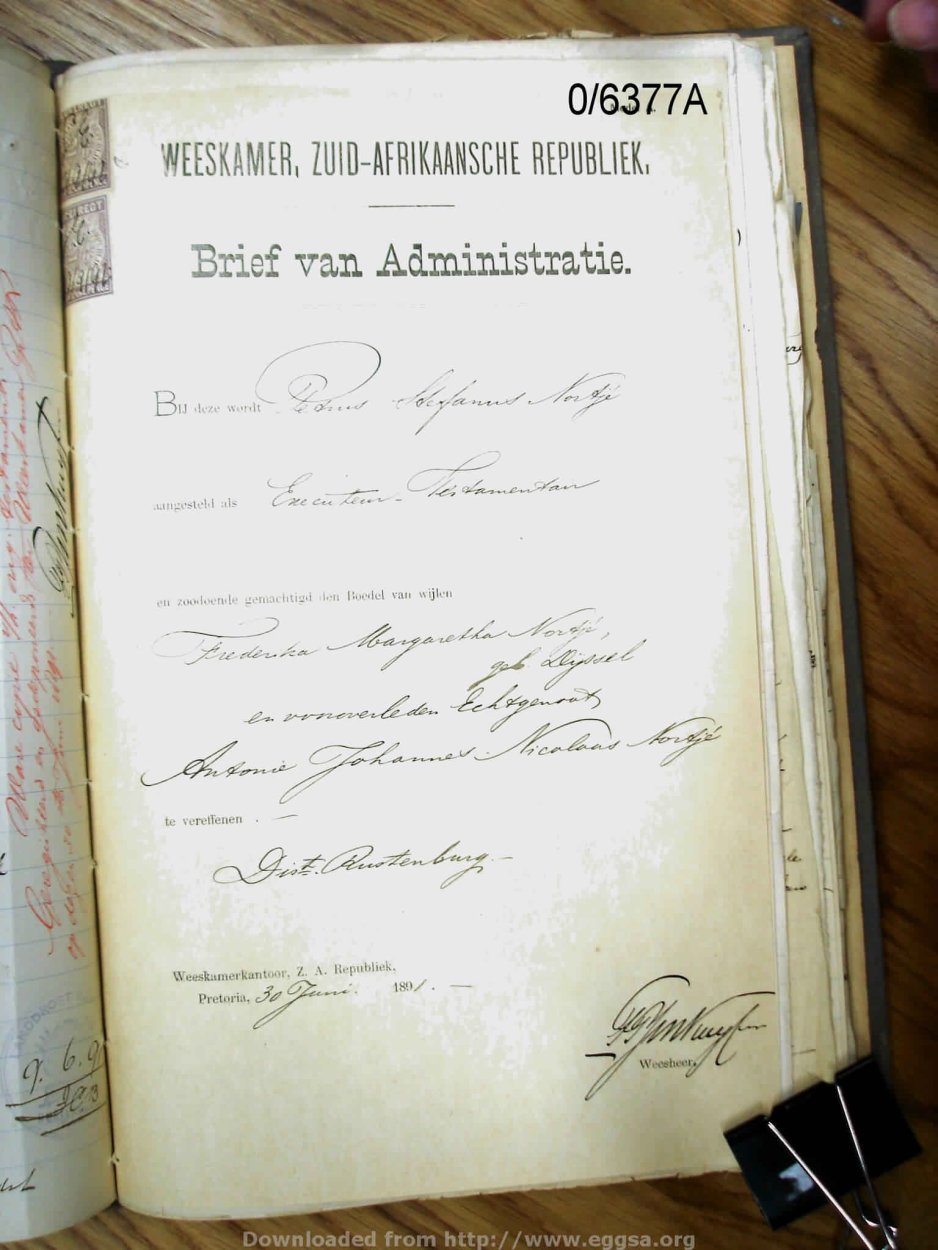 0/6377A
WEESKAMER, ZUID-AFRIKAANSCHE REPUBLIEK.
Brief van Administratie.
BIJ deze wordt Petrus Stefanus Nortjé
aangesteld als Executeur-Testamentair
en zoodoende gemachtigd den Boedel van wijlen
Frederika Margaretha Nortjé,
geb. Dijssel
en vooroverleden Echtgenoot
Antonie Johannes Nicolaas Nortjé
te vereffenen . —
Dist. Rustenburg. —
Weeskamerkantoor, Z. A. Republiek,
Pretoria, 30 Juni. 1891. —
Weesheer.
Downloaded from http://www.eggsa.org